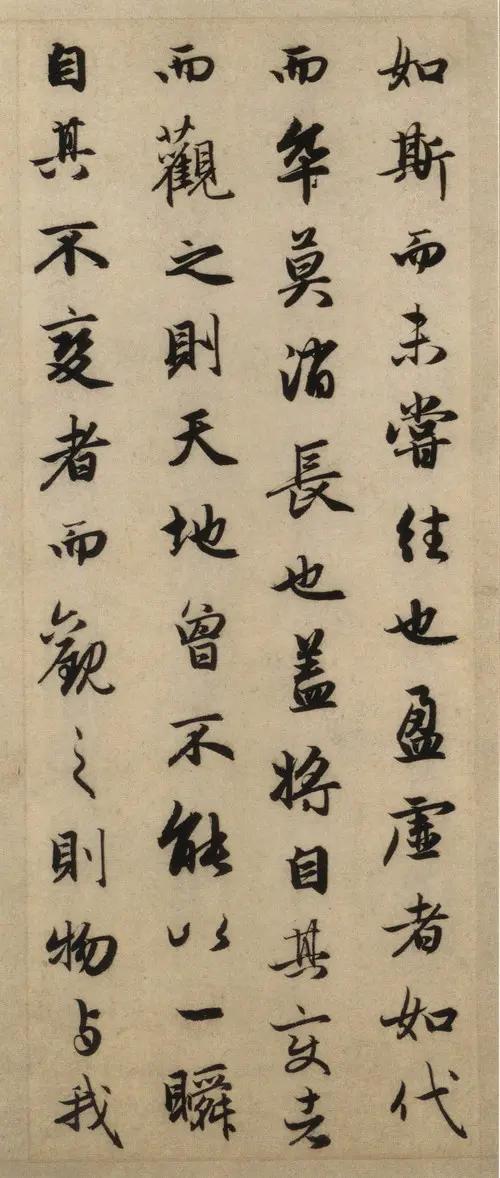 如斯而未嘗往也盈虛者如代
而卒莫消長也盖將自其變者
而觀之則天地曾不能以一瞬
自其不變者而觀之則物与我